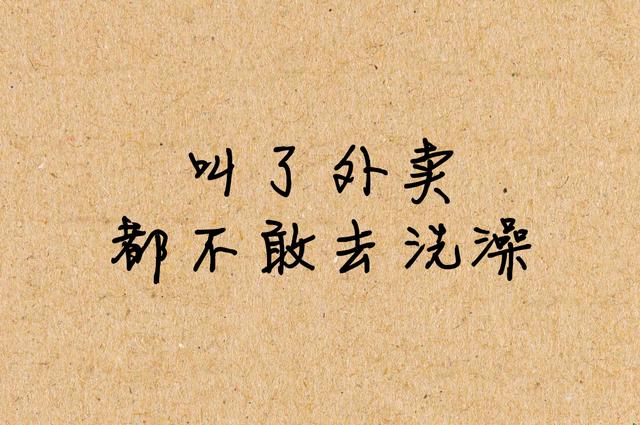 叫了外卖
都不敢去洗澡